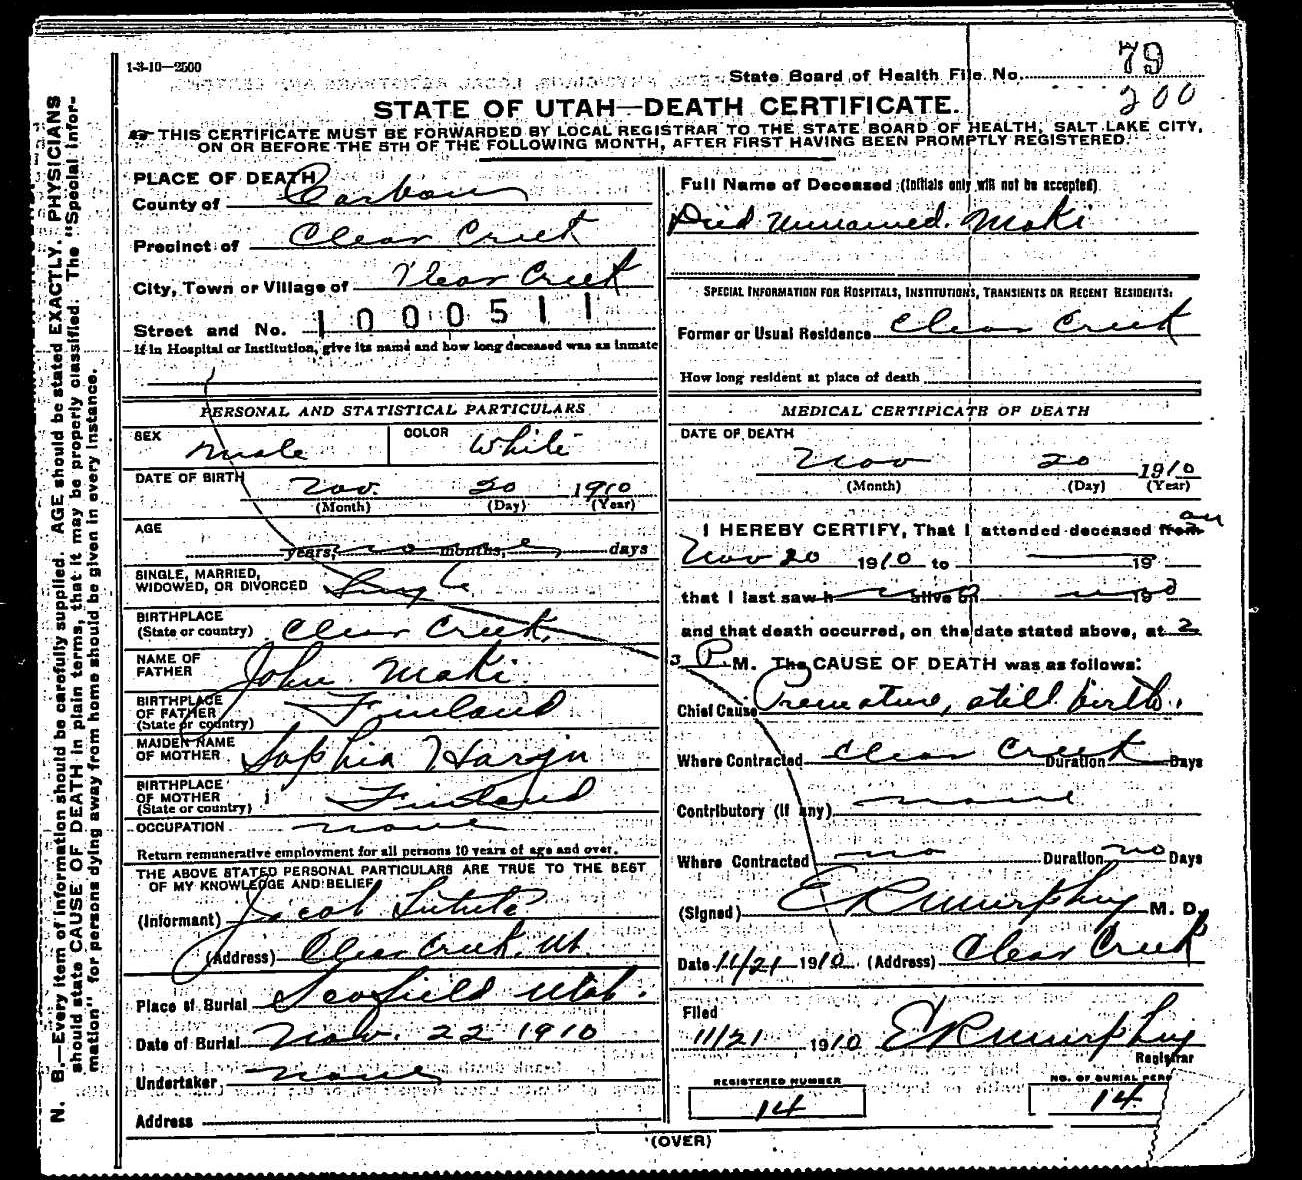 1-3-10—2500
State Board of Health File No. 79
200
STATE OF UTAH—DEATH CERTIFICATE.
THIS CERTIFICATE MUST BE FORWARDED BY LOCAL REGISTRAR TO THE STATE BOARD OF HEALTH, SALT LAKE CITY,
ON OR BEFORE THE 5TH OF THE FOLLOWING MONTH, AFTER FIRST HAVING BEEN PROMPTLY REGISTERED.
N. B.—Every item of information should be carefully supplied. AGE should be stated EXACTLY. PHYSICIANS
should state CAUSE OF DEATH in plain terms, that it may be properly classified. The "Special Infor-
mation" for persons dying away from home should be given in every instance.
PLACE OF DEATH
County of Carbon
Precinct of Clear Creek
City, Town or Village of Clear Creek
Street and No. 1000511
If in Hospital or Institution, give its name and how long deceased was an inmate
PERSONAL AND STATISTICAL PARTICULARS
SEX male COLOR White
DATE OF BIRTH Nov. 20 1910
(Month) (Day) (Year)
AGE
years, months, days
SINGLE, MARRIED,
WIDOWED, OR DIVORCED Single
BIRTHPLACE
(State or country) Clear Creek,
NAME OF
FATHER John Maki.
BIRTHPLACE
OF FATHER Finland
(State or country)
MAIDEN NAME
OF MOTHER Sophia Harju
BIRTHPLACE
OF MOTHER Finland
(State or country)
OCCUPATION none
Return remunerative employment for all persons 10 years of age and over.
THE ABOVE STATED PERSONAL PARTICULARS ARE TRUE TO THE BEST
OF MY KNOWLEDGE AND BELIEF
(Informant) Jacob
(Address) Clear Creek, Ut.
Place of Burial Scofield Utah.
Date of Burial Nov. 22 1910
Undertaker none
Address
Full Name of Deceased (Initials only will not be accepted)
Died Unnamed. Maki
SPECIAL INFORMATION FOR HOSPITALS, INSTITUTIONS, TRANSIENTS OR RECENT RESIDENTS:
Former or Usual Residence Clear Creek
How long resident at place of death
MEDICAL CERTIFICATE OF DEATH
DATE OF DEATH
Nov 20 1910
(Month) (Day) (Year)
I HEREBY CERTIFY, That I attended deceased from on
Nov 20 1910 to 19
that I last saw h alive on 19
and that death occurred, on the date stated above, at 2
P. M. The CAUSE OF DEATH was as follows:
Chief Cause Premature, still birth.
Where Contracted Clear Creek Duration Days
Contributory (if any) none
Where Contracted no Duration no Days
(Signed) E R Murphy M. D.
Date 11/21 1910 (Address) Clear Creek
Filed
11/21 1910 E R Murphy
Registrar
REGISTERED NUMBER
14
NO. OF BURIAL PERM
14
(OVER)